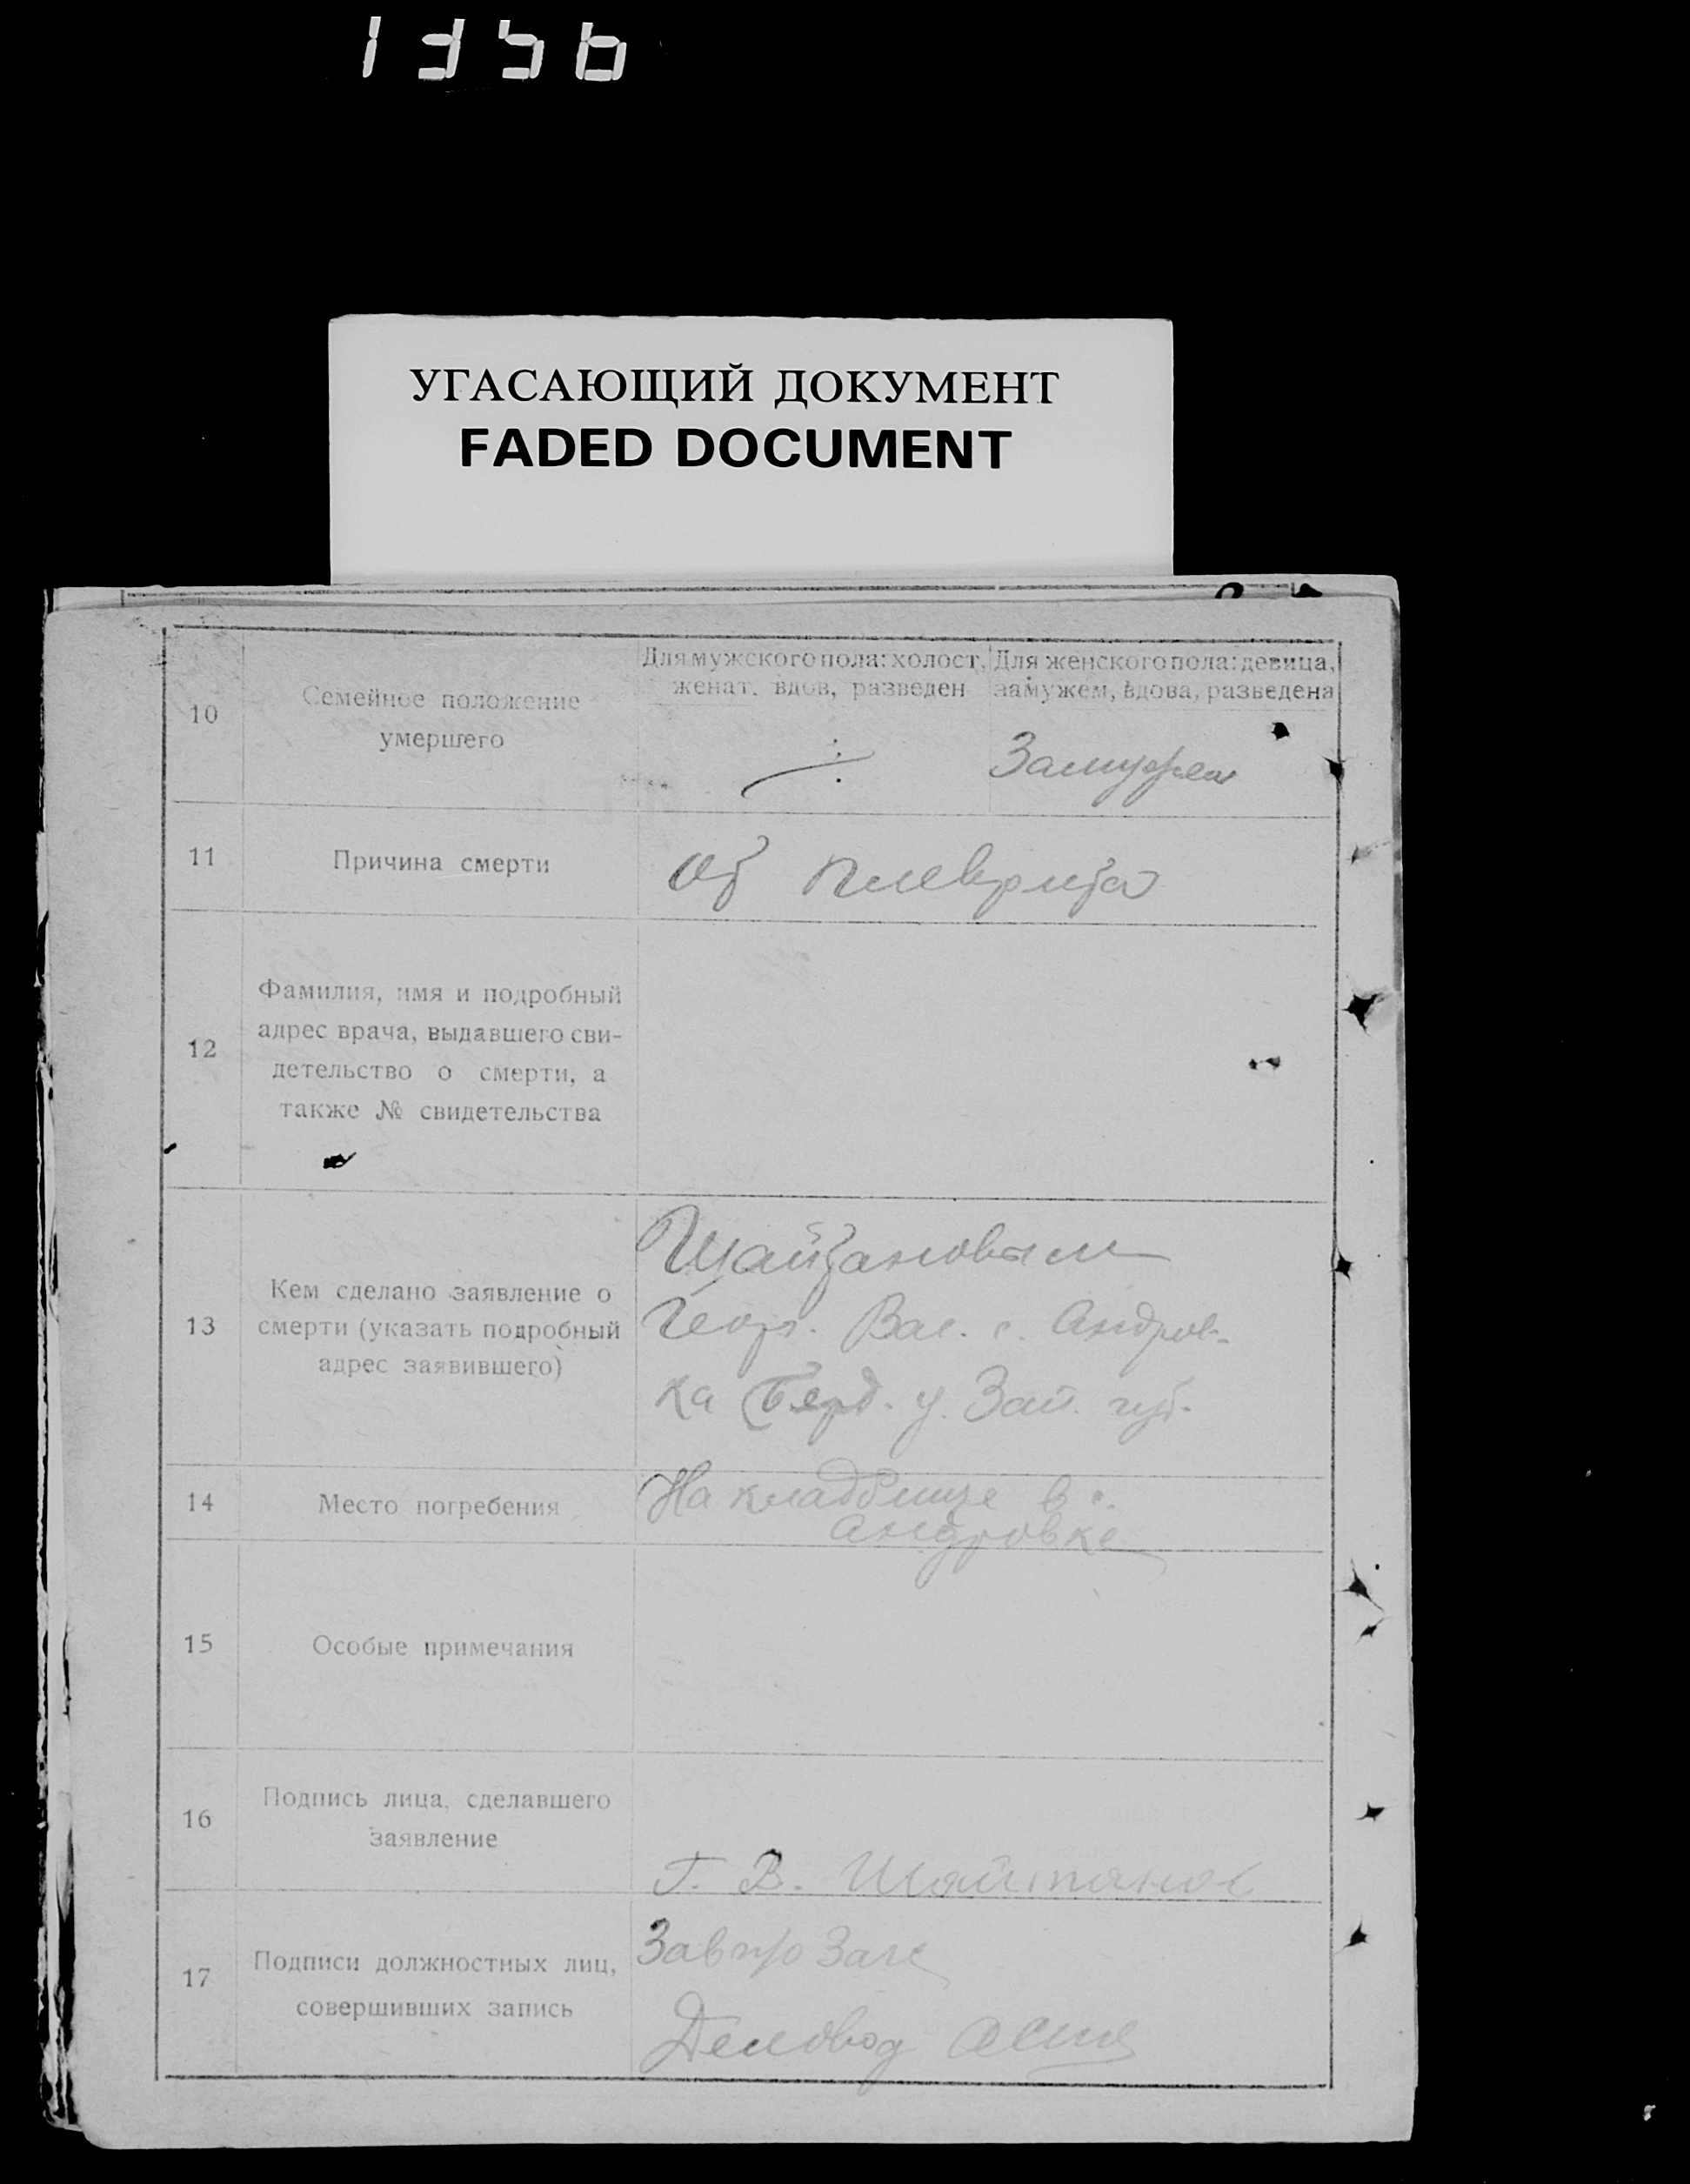 1356
УГАСАЮЩИЙ ДОКУМЕНТ
FADED DOCUMENT
10
Семейное положение
умершего
Для мужского пола: холост,
женат, вдов, разведен
Для женского пола: девица,
замужем, вдова, разведена
Замужем
11
Причина смерти
От плеврита
12
Фамилия, имя и подробный
адрес врача, выдавшего сви-
детельство о смерти, а
также № свидетельства
13
Кем сделано заявление о
смерти (указать подробный
адрес заявившего)
Шайтановым
Георг. Вас. с. Андров-
ка Берд. у. Зап. губ.
14
Место погребения
На кладбище в с.
Андровке
15
Особые примечания
16
Подпись лица, сделавшего
заявление
Г. В. Шайтанов
17
Подписи должностных лиц,
совершивших запись
Завп/о Загс
Деловод